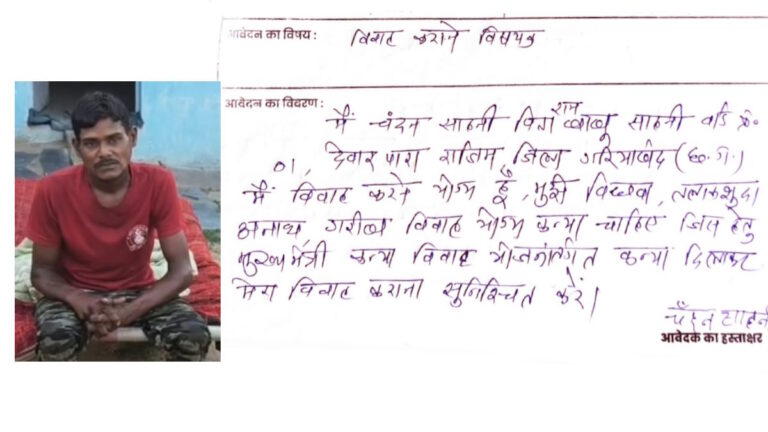 आवेदन का विषय : विवाह कराने विषयक
आवेदन का विवरण :
मैं चंदन साहनी पिता राम बाबू साहनी वार्ड क्र.
01, देवार पारा राजिम, जिला गरियाबंद (छ.ग.)
मैं विवाह करने योग्य हूँ, मुझे विधवा, तलाकशुदा
अनाथ गरीब विवाह योग्य कन्या चाहिए जिस हेतु
मुख्यमंत्री कन्या विवाह योजनांतर्गत कन्या दिलाकर
मेरा विवाह कराना सुनिश्चित करें।
चंदन साहनी
आवेदक का हस्ताक्षर